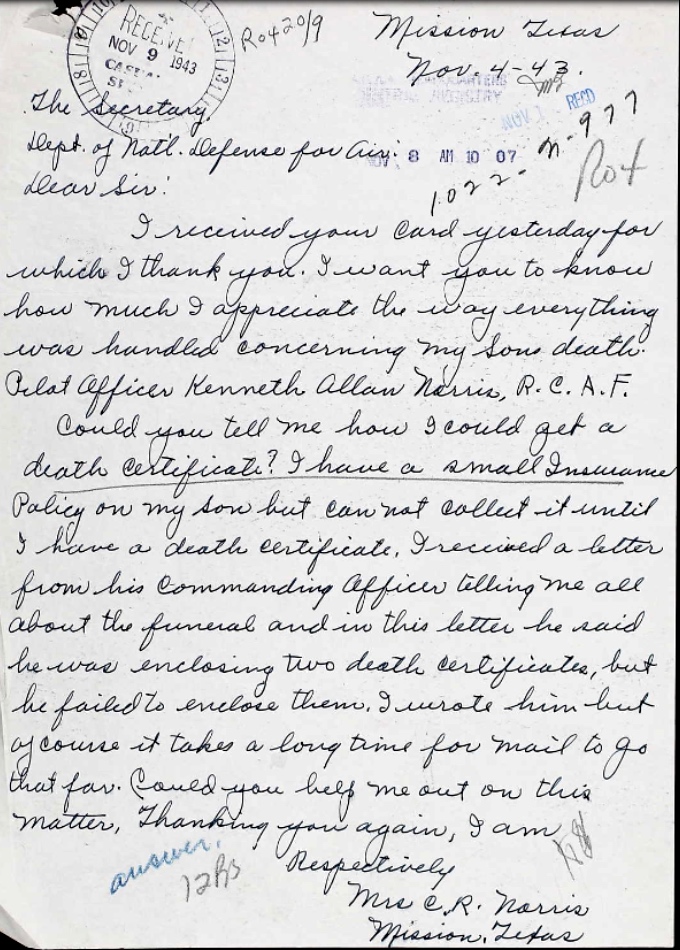 RECEIVED
NOV 9 1943
R04 2019
Mission Texas
Nov. 4-43.
RECD
The Secretary,
Dept. of Nat'l. Defense for Air.
NOV 8 AM 10 07
1022- N-977
R04
Dear Sir:
I received your card yesterday for
which I thank you. I want you to know
how much I appreciate the way everything
was handled concerning my Sons death.
Pilot Officer Kenneth Allan Norris, R.C.A.F.
Could you tell me how I could get a
death certificate? I have a small Insurance
Policy on my son but can not collect it until
I have a death certificate. I received a letter
from his Commanding Officer telling me all
about the funeral and in this letter he said
he was enclosing two death certificates, but
he failed to enclose them. I wrote him but
of course it takes a long time for mail to go
that far. Could you help me out on this
matter, Thanking you again, I am
Respectively
answer,
Mrs C.R. Norris
Mission, Texas